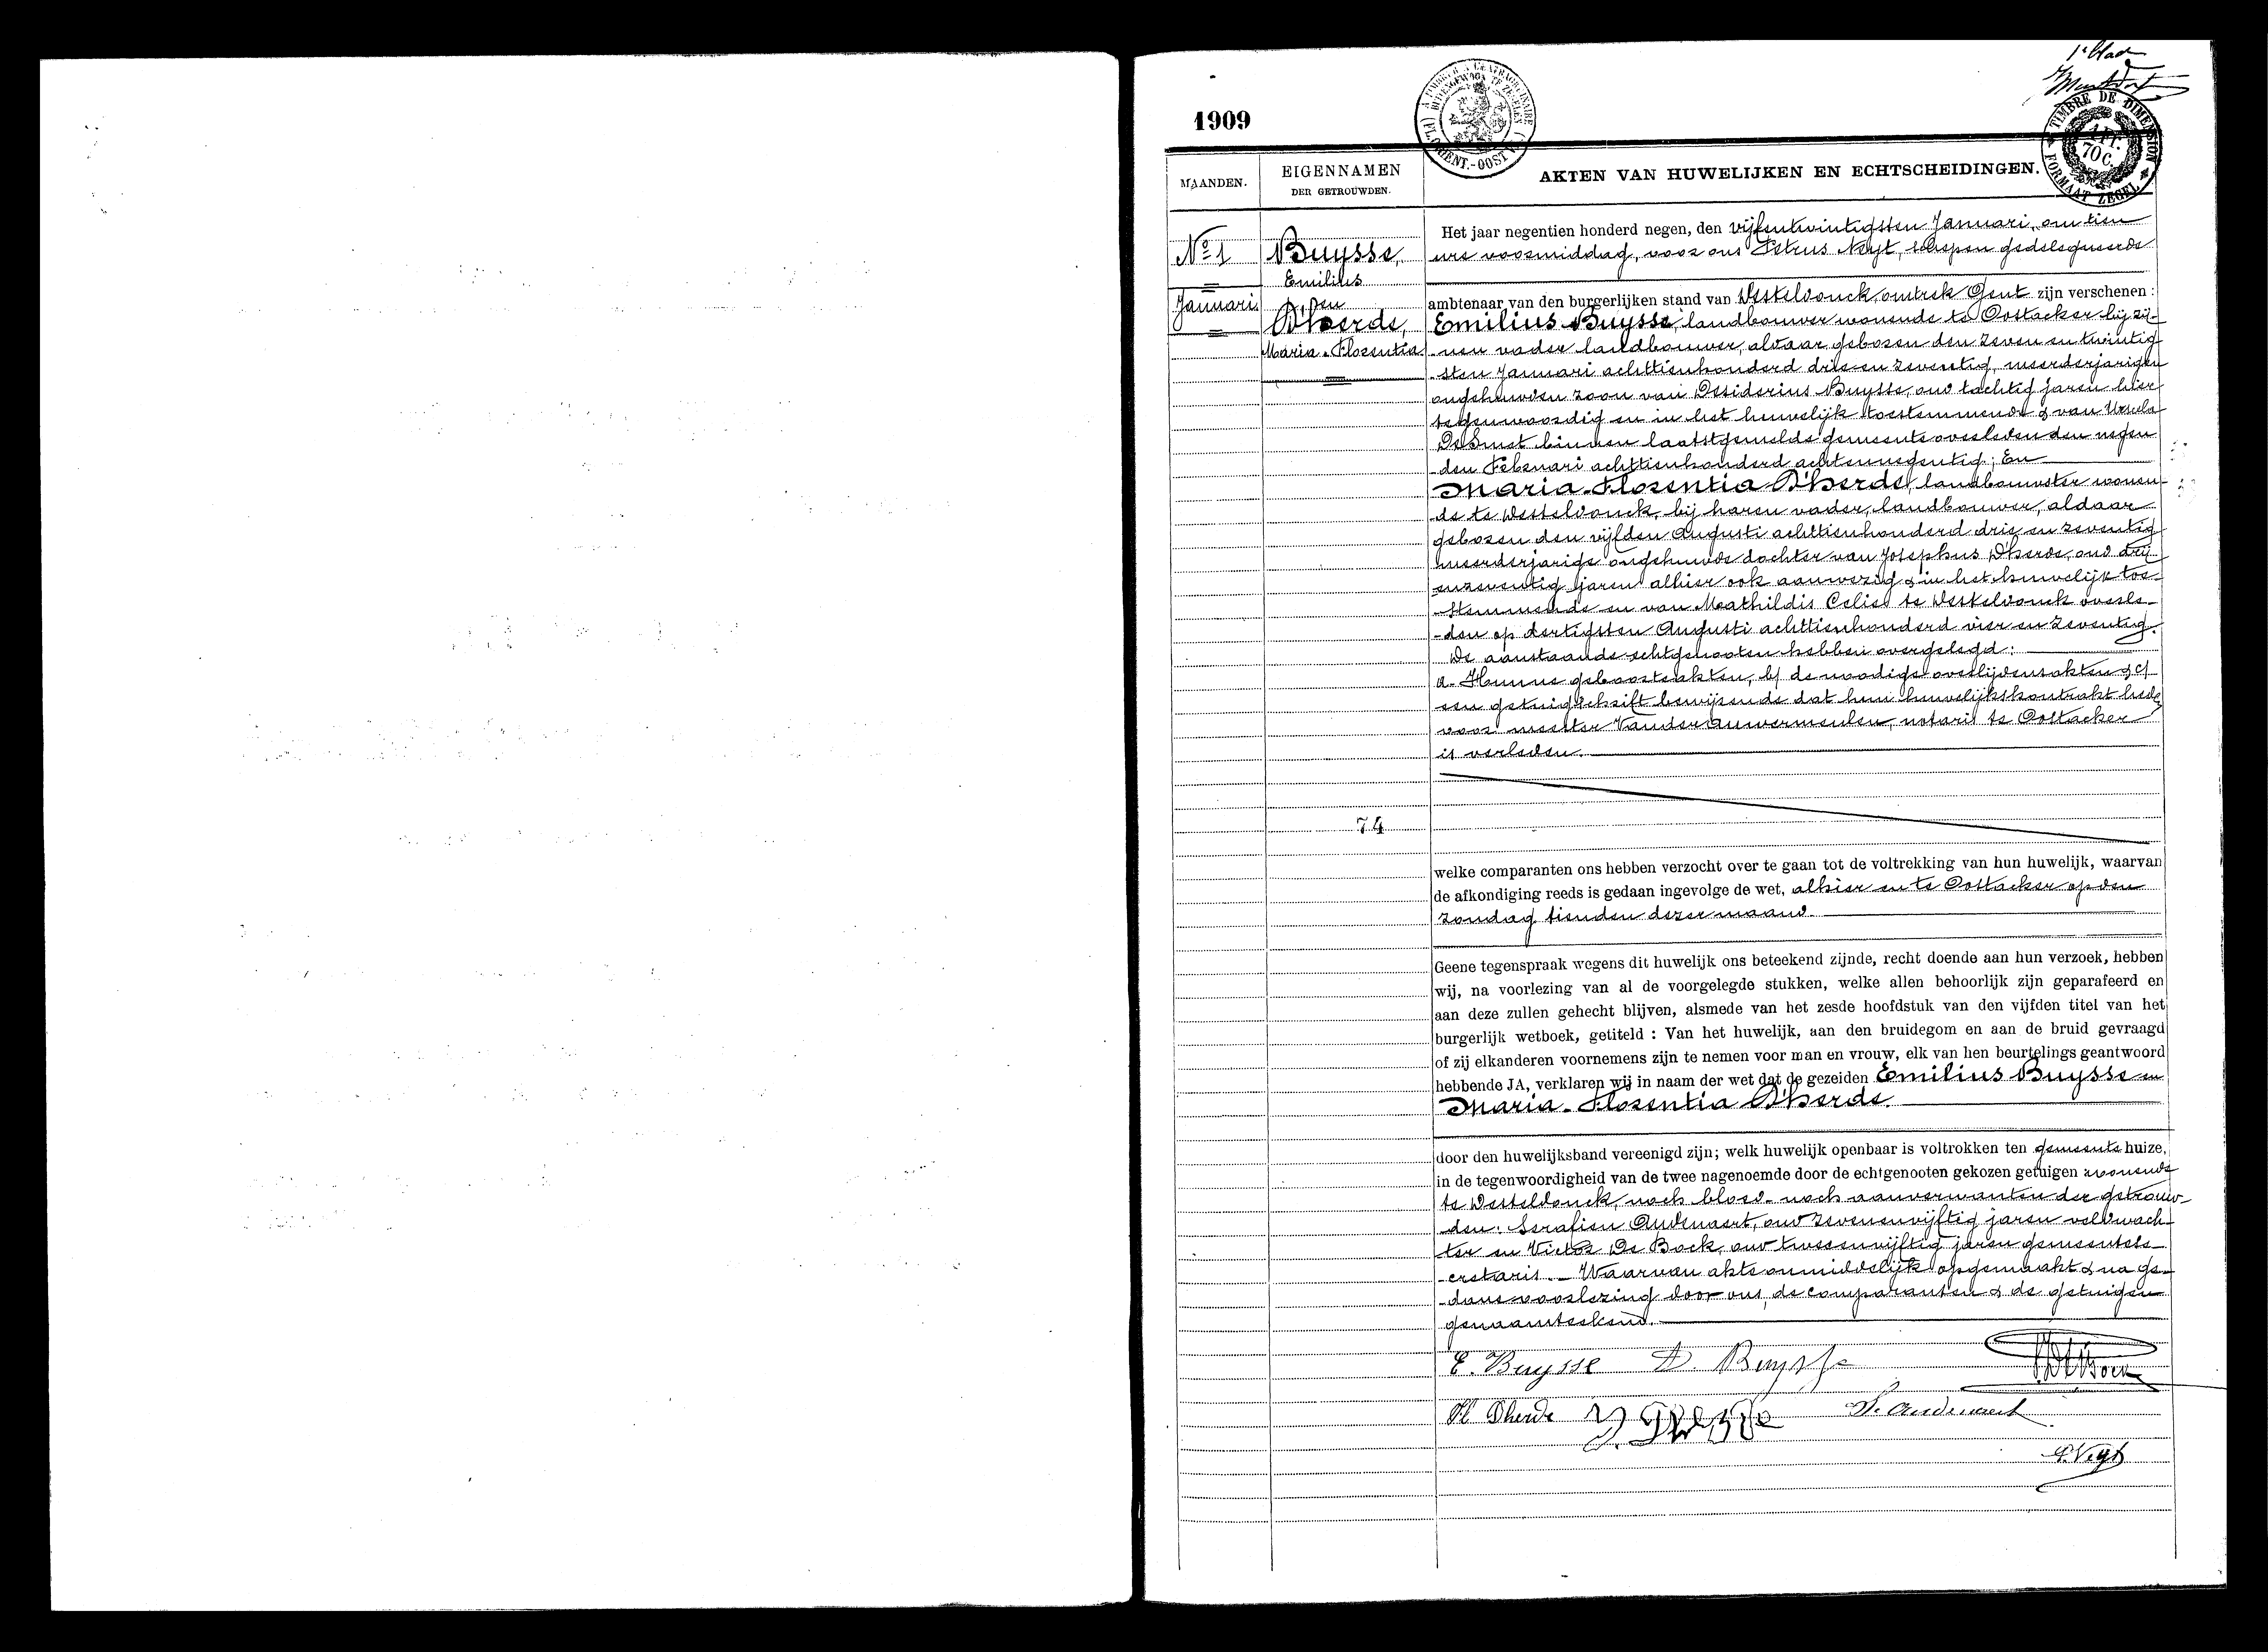 1e blad
1909
TIMBRE DE DIMENSION
1 FR. 70 C.
FORMAAT ZEGEL
MAANDEN.
EIGENNAMEN
DER GETROUWDEN.
AKTEN VAN HUWELIJKEN EN ECHTSCHEIDINGEN.
No 1
Januari
Buysse,
Emilius
en
D'herde,
Maria-Florentia
Het jaar negentien honderd negen, den vijfentwintigsten Januari, om tien
ure voormiddag, voor ons Petrus Neyt, schepen gedelegueerde
ambtenaar van den burgerlijken stand van Desteldonck, omtrek Gent zijn verschenen :
Emilius Buysse, landbouwer wonende te Oostacker bij zij-
nen vader landbouwer, aldaar geboren den zeven en twintig
sten Januari achttienhonderd drie en zeventig, meerderjarigen
ongehuwden zoon van Desiderius Buysse, oud tachtig jaren hier
tegenwoordig en in het huwelijk toestemmende & van Ursula
DeSmet binnen laatstgemelde gemeente overleden den negen
den Februari achttienhonderd achtennegentig; En
Maria-Florentia D'herde, landbouwster wonen-
de te Desteldonck, bij haren vader, landbouwer, aldaar
geboren den vijfden Augusti achttienhonderd drie en zeventig
meerderjarige ongehuwde dochter van Josephus D'herde, oud drij
enzeventig jaren alhier ook aanwezig & in het huwelijk toe-
stemmende en van Mathildis Celie te Desteldonck overle-
-den op dertigsten Augusti achttienhonderd vier en zeventig.
De aanstaande echtgenooten hebben overgelegd :
a. Hunne geboorteakten, b/ de noodige overlijdensakten & c/
een getuigschrift bewijzende dat hun huwelijkskontrakt heden
voor meester Vander Auwermeulen, notaris te Oostacker
is verleden.
74
welke comparanten ons hebben verzocht over te gaan tot de voltrekking van hun huwelijk, waarvan
de afkondiging reeds is gedaan ingevolge de wet, alhier en te Oostacker op den
zondag tienden dezer maand.
Geene tegenspraak wegens dit huwelijk ons beteekend zijnde, recht doende aan hun verzoek, hebben
wij, na voorlezing van al de voorgelegde stukken, welke allen behoorlijk zijn geparafeerd en
aan deze zullen gehecht blijven, alsmede van het zesde hoofdstuk van den vijfden titel van het
burgerlijk wetboek, getiteld : Van het huwelijk, aan den bruidegom en aan de bruid gevraagd
of zij elkanderen voornemens zijn te nemen voor man en vrouw, elk van hen beurtelings geantwoord
hebbende JA, verklaren wij in naam der wet dat de gezeiden Emilius Buysse en
Maria-Florentia D'herde.
door den huwelijksband vereenigd zijn; welk huwelijk openbaar is voltrokken ten gemeente huize,
in de tegenwoordigheid van de twee nagenoemde door de echtgenooten gekozen getuigen wonende
te Desteldonck, noch bloed- noch aanverwanten der getrouw-
den: Serafien Audenaert, oud zevenenvijftig jaren veldwach-
ter en Victor De Bock, oud tweeenvijftig jaren gemeentese-
cretaris. — Waarvan akte onmiddelijk opgemaakt & na ge-
dane voorlezing door ons, de comparanten & de getuigen
genaamteekend.
E. Buysse D. Buysse
Fl Dherde S. Audenaert
P. Neyt